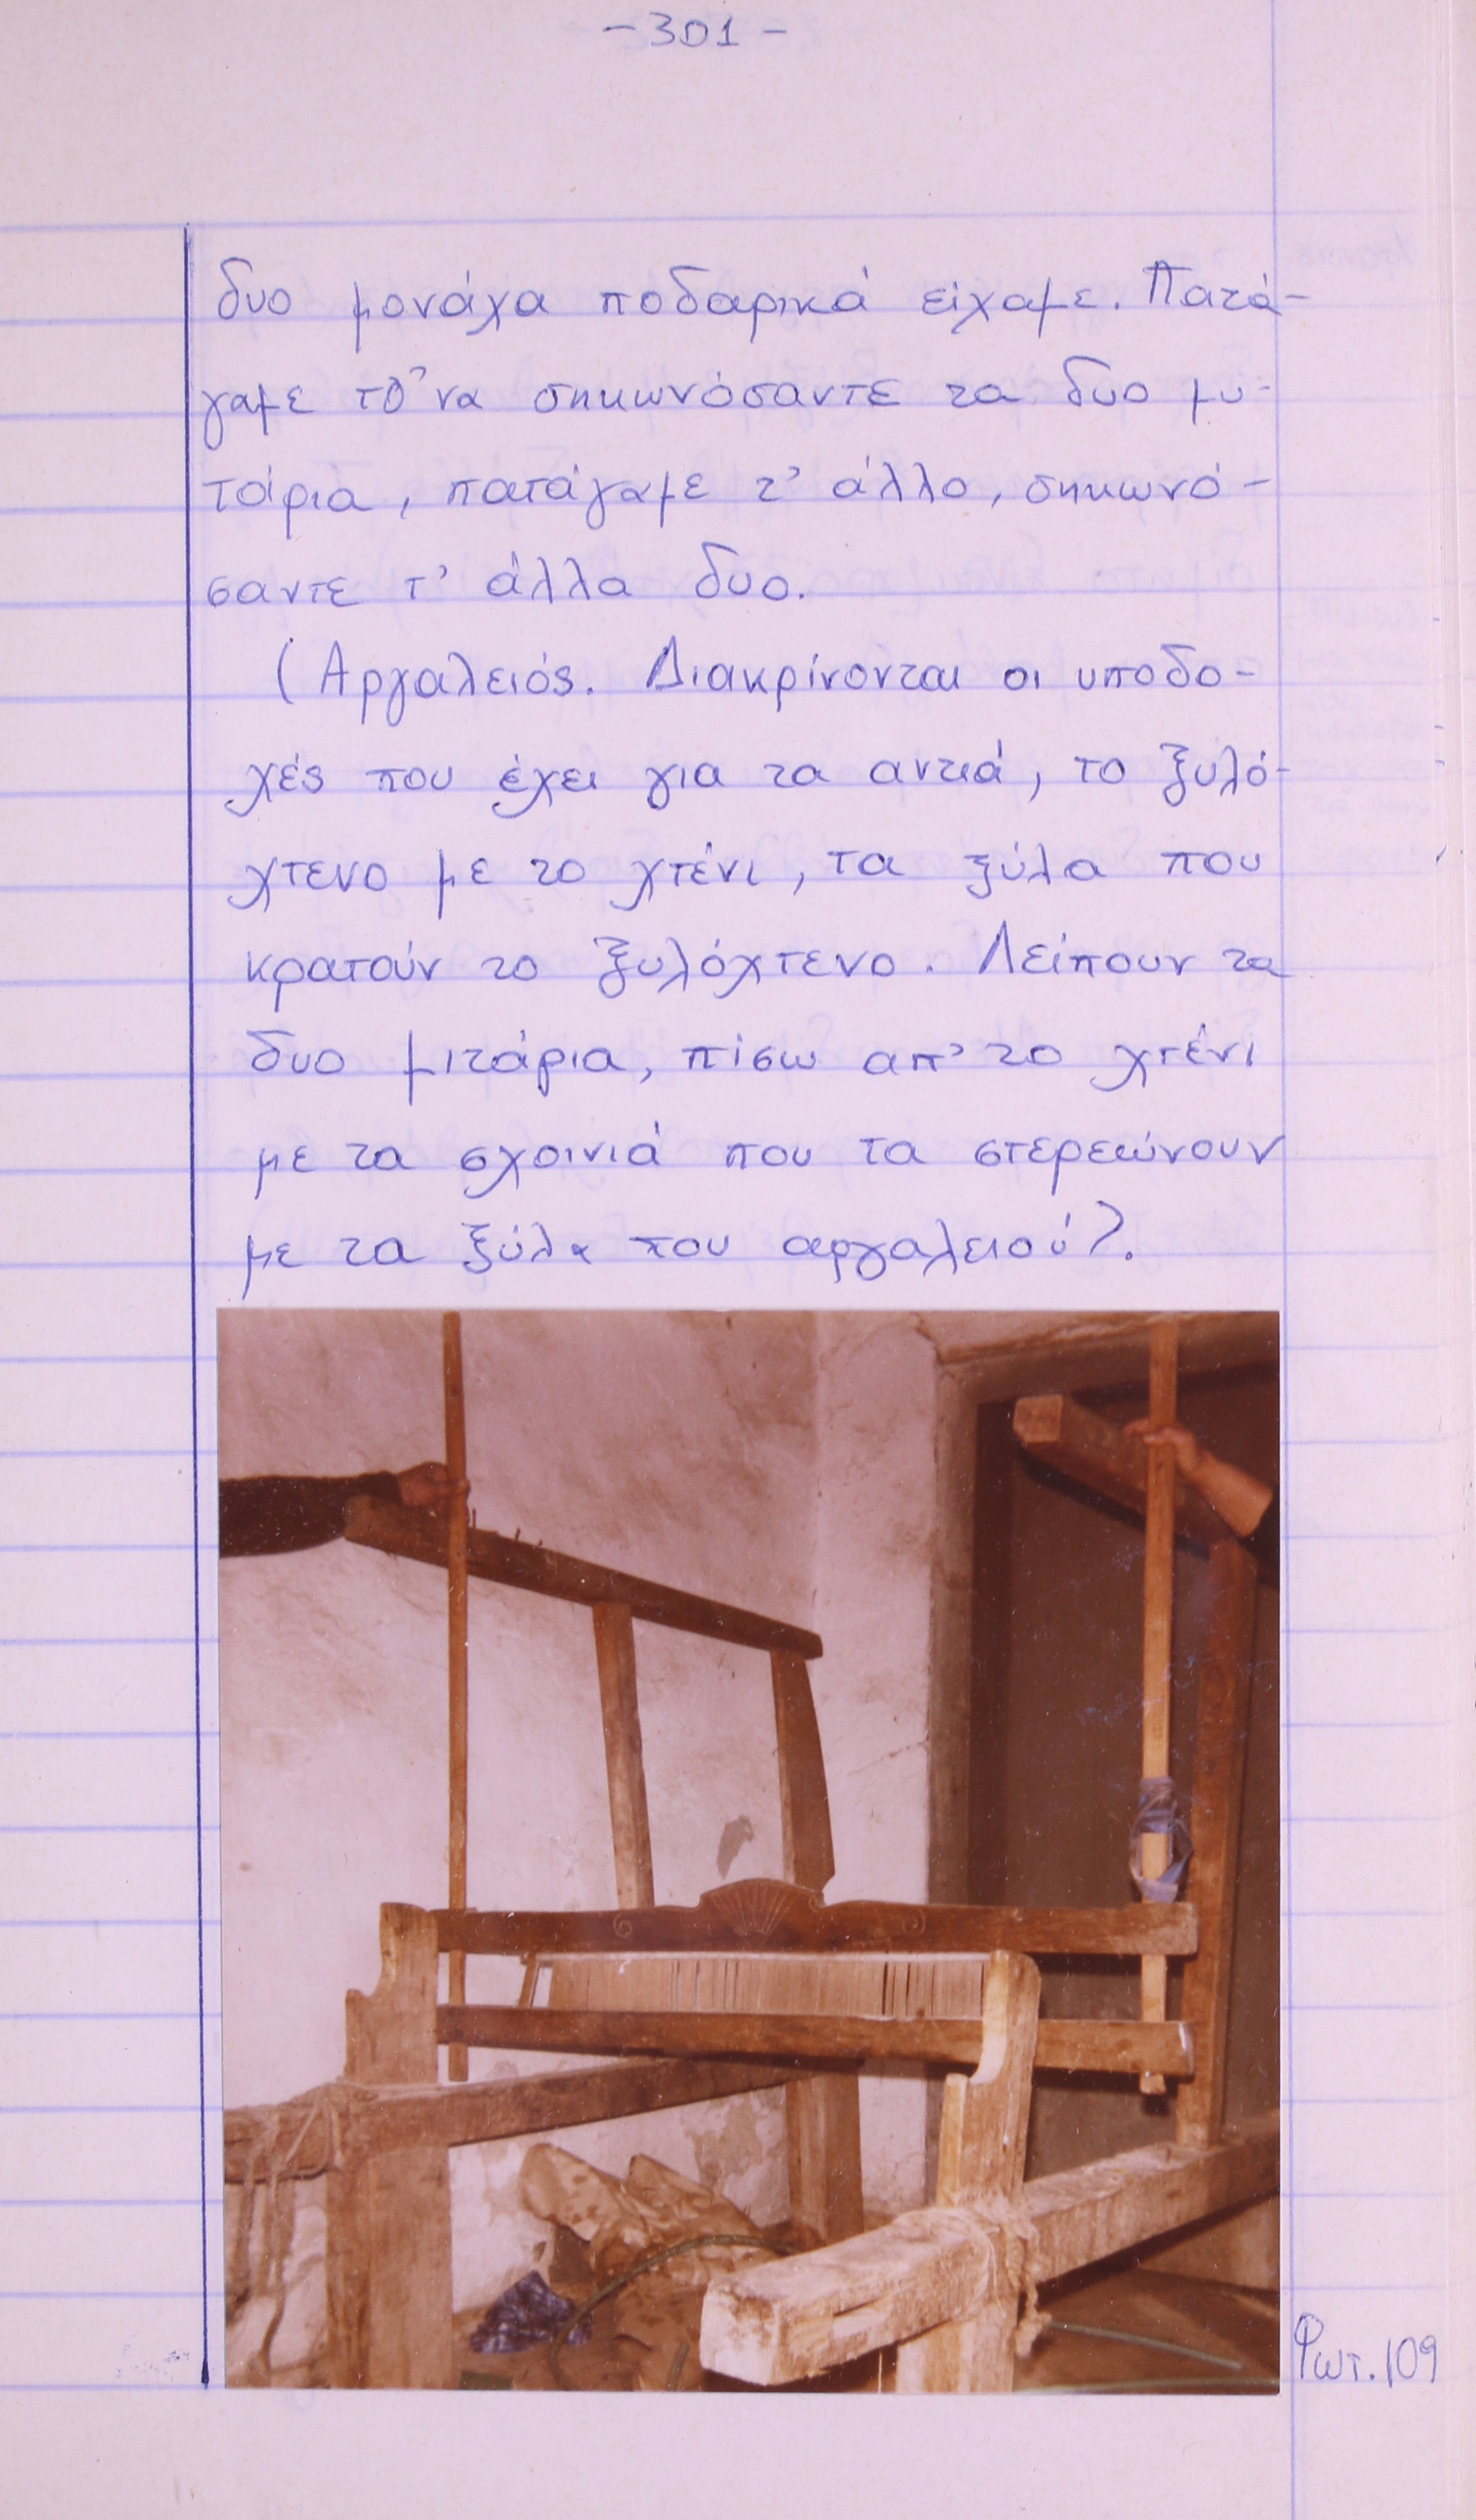 -301-
δυο μονάχα ποδαρικά είχαμε. Πατά-
γαμε τό'να σηκωνόσαντε τα δυο μυ-
τάρια, πατάγαμε τ' άλλο, σηκωνό-
σαντε τ' άλλα δυο.
(Αργαλειός. Διακρίνονται οι υποδο-
χές που έχει για τα αντιά, το ξυλό-
χτενο με το χτένι, τα ξύλα που
κρατούν το ξυλόχτενο. Λείπουν τα
δυο μιτάρια, πίσω απ' το χτένι
με τα σχοινιά που τα στερεώνουν
με τα ξύλα του αργαλειού).
Φωτ. 109